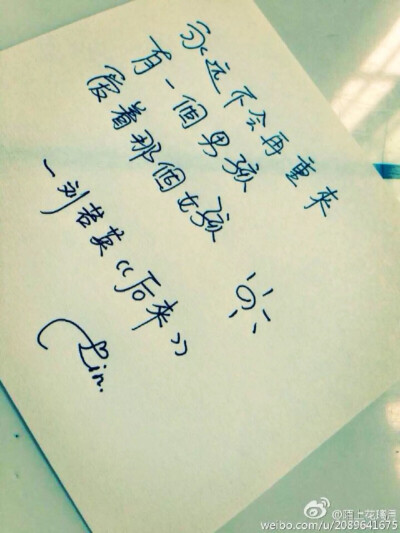 永远不会再重来
有一個男孩
爱着那個女孩
—刘若英《后来》
Lin.
weibo.com/u/2089641675